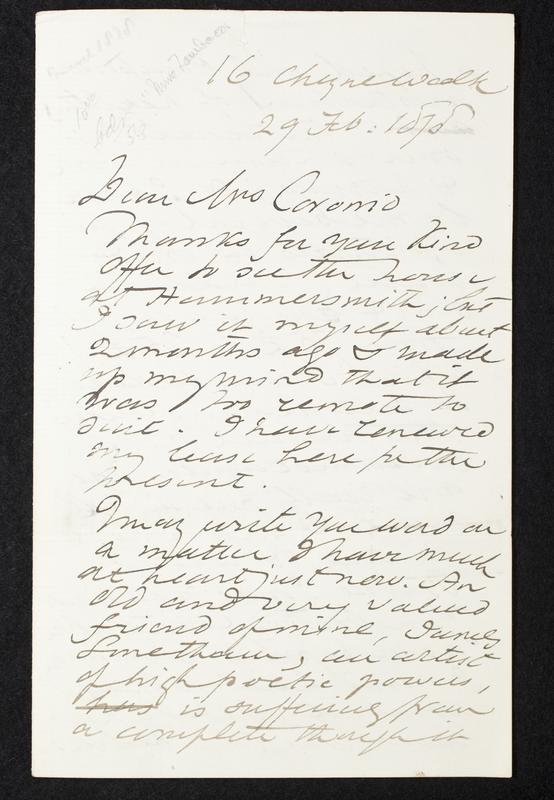 16 Cheyne Walk
29 Feb: 1878
Dear Mrs Coronio
Thanks for your kind
offer to see the house
at Hammersmith; but
I saw it myself about
2 months ago & made
up my mind that it
was too remote to
suit. I have renewed
my lease here for the
present.
I may write you word on
a matter I have much
at heart just now. An
old and very valued
friend of mine, James
Smetham, an artist
of high poetic powers,
has is suffering from
a complete though it